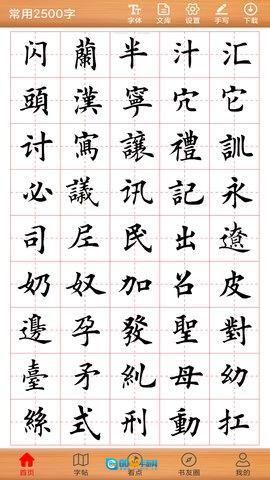 常用2500字 字体 文库 设置 手写 下载
闪 蘭 半 汁 汇
頭 漢 寧 穴 它
讨 寫 讓 禮 訓
必 議 讯 記 永
司 尼 民 出 遼
奶 奴 加 召 皮
邊 孕 發 聖 對
臺 矛 糾 母 幼
絲 式 刑 動 扛
首页 字帖 看点 书友圈 我的